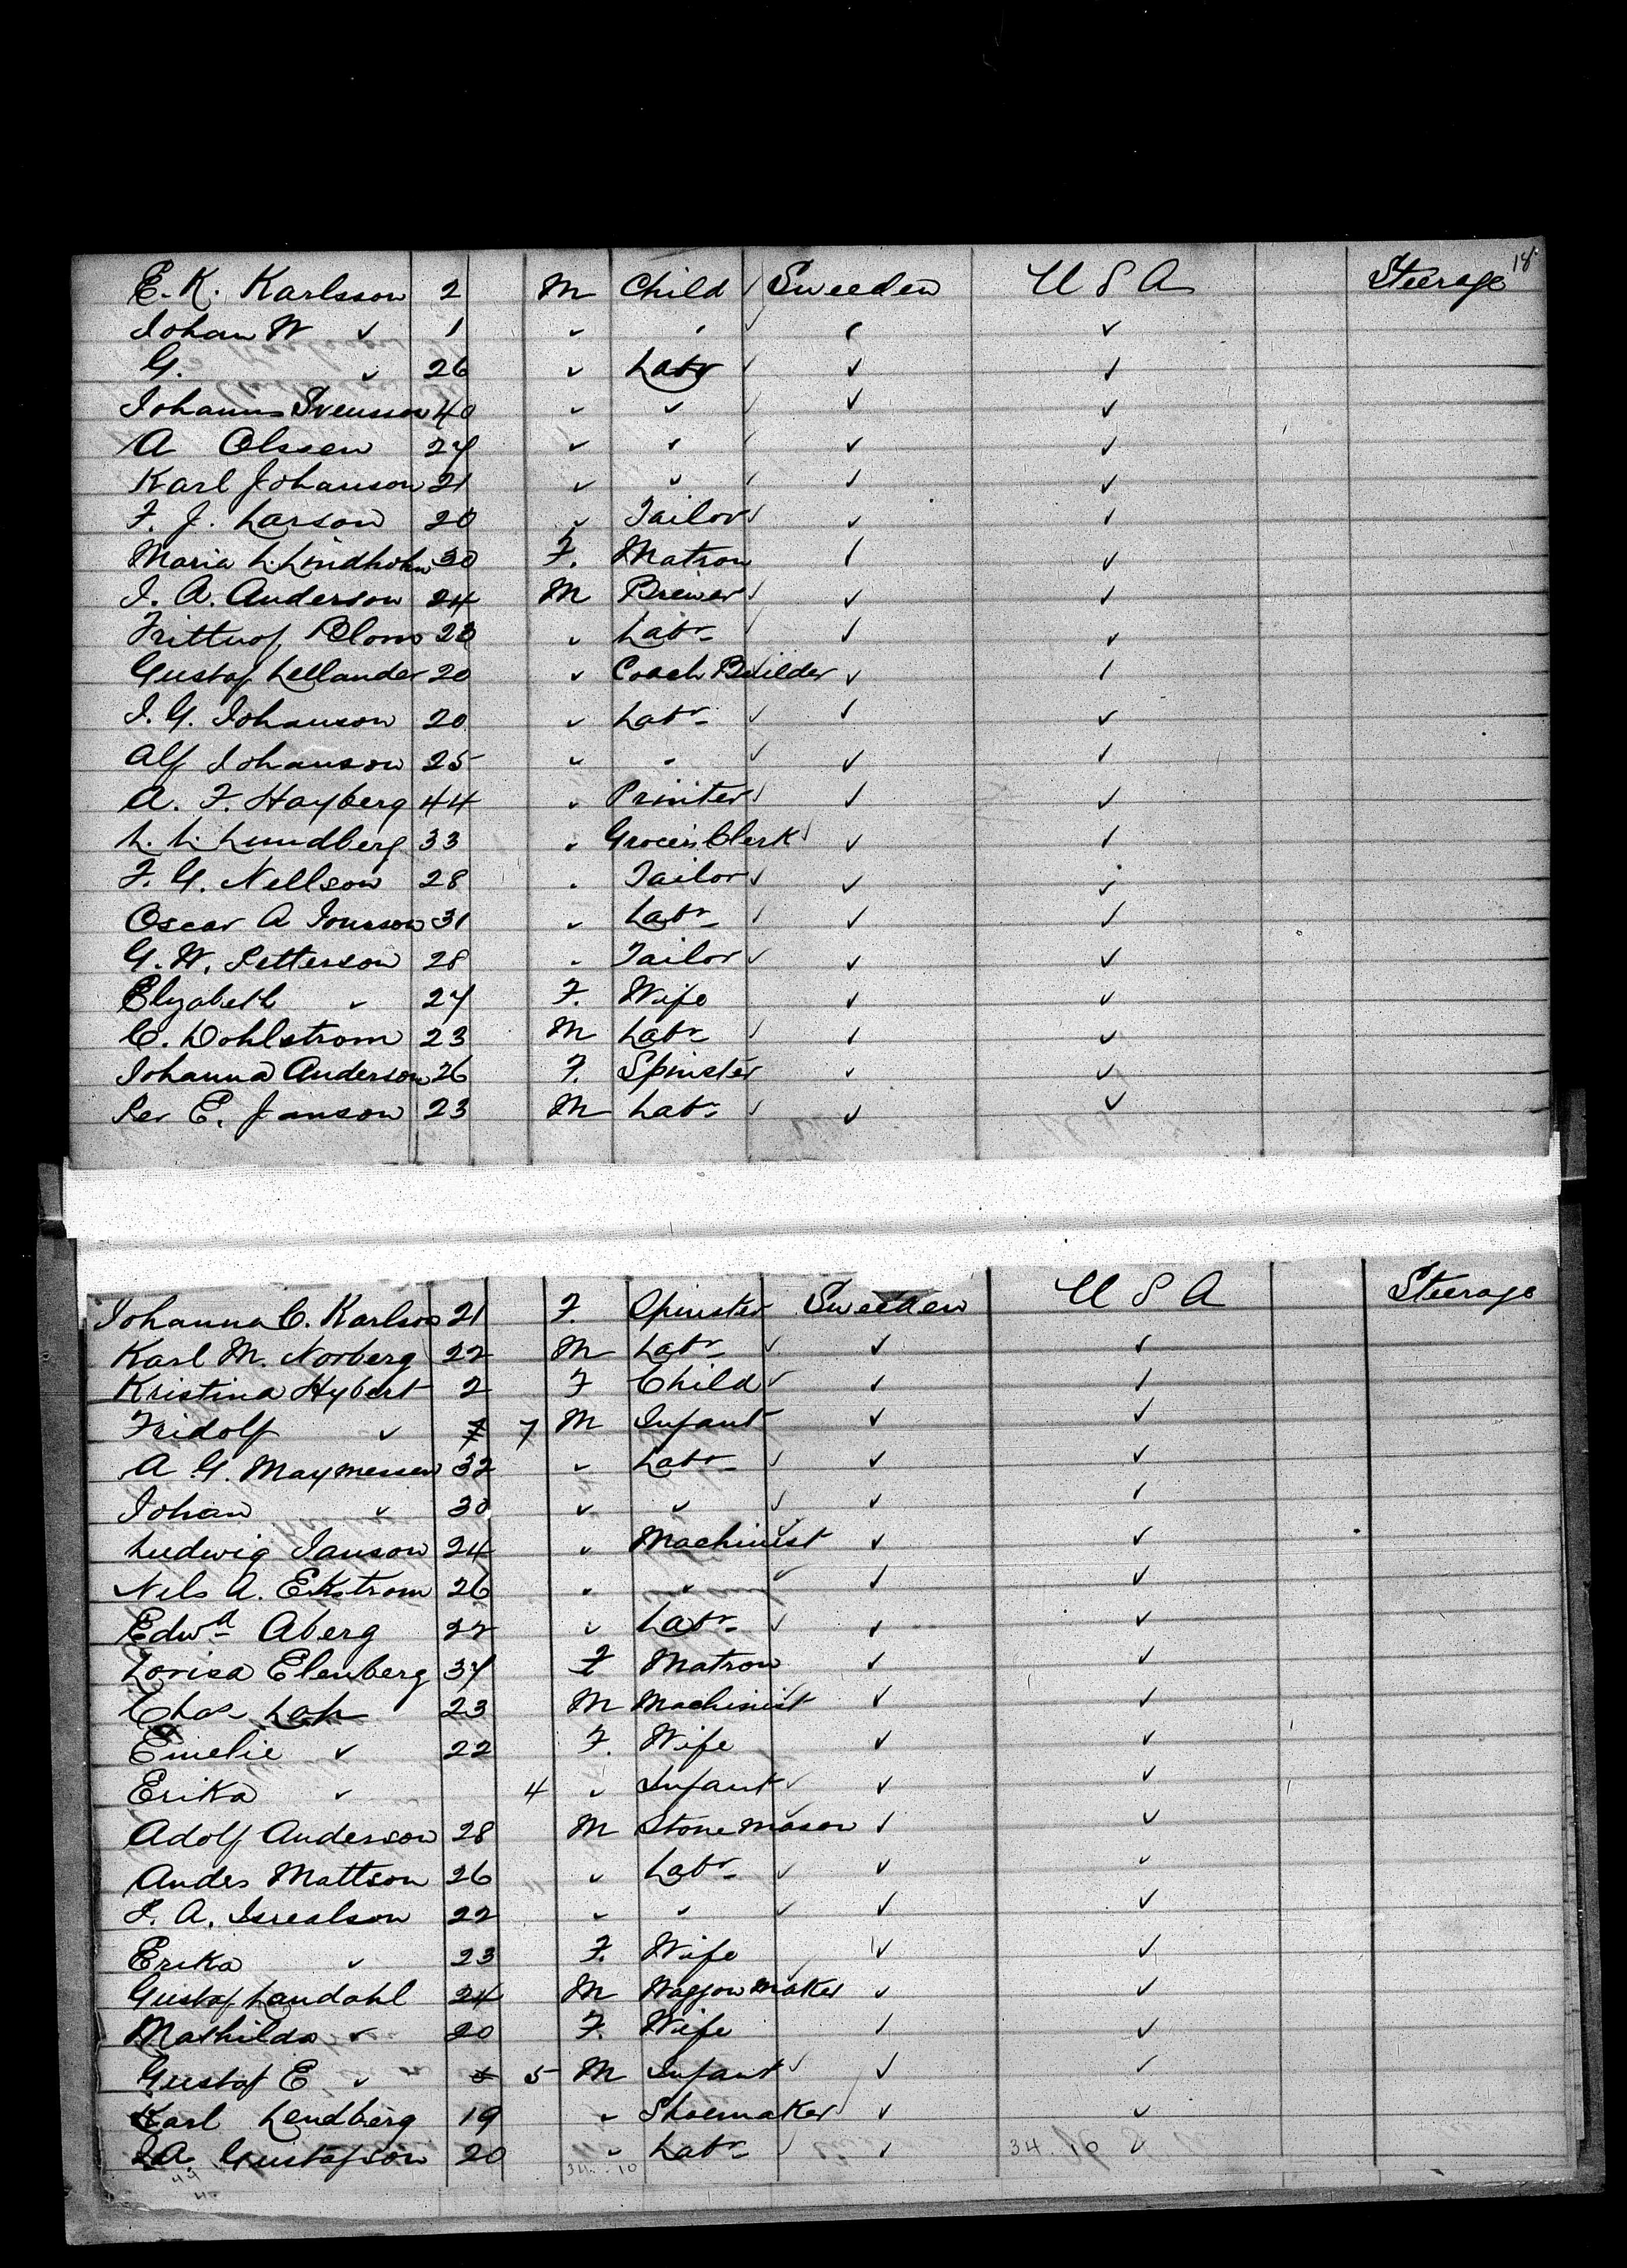 18
E. K. Karlsson 2 M Child ✓ Sweeden U S A Steerage
Johan W ✓ 1 ✓ ✓ ✓ ✓ ✓
G. ✓ 26 ✓ Labr ✓ ✓ ✓
Johanns Svensson 40 ✓ ✓ ✓ ✓ ✓
A Olssen 27 ✓ ✓ ✓ ✓ ✓
Karl Johanson 21 ✓ ✓ ✓ ✓ ✓
F. J. Larson 20 ✓ Tailor ✓ ✓ ✓
Maria L. Lindholm 30 F. Matron ✓ ✓
J. A. Anderson 24 M Brewer ✓ ✓ ✓
Frithof Blom 28 ✓ Labr ✓ ✓ ✓
Gustaf Lellander 20 ✓ Coach Builder ✓ ✓ ✓
J. G. Johanson 20 ✓ Labr ✓ ✓ ✓
Alf Johanson 25 ✓ ✓ ✓ ✓ ✓
A. F. Hayberg 44 ✓ Printer ✓ ✓ ✓
L. L. Lundberg 33 ✓ Grocers Clerk ✓ ✓ ✓
F. G. Nellson 28 ✓ Tailor ✓ ✓ ✓
Oscar A Jonsson 31 ✓ Labr ✓ ✓ ✓
G. W. Petterson 28 ✓ Tailor ✓ ✓ ✓
Elyzabeth ✓ 27 F. Wife ✓ ✓
C. Dohlstrom 23 M Labr ✓ ✓ ✓
Johanna Anderson 26 F. Spinster ✓ ✓
Per E. Janson 23 M Labr ✓ ✓ ✓
Johanna C. Karlson 21 F. Spinster Sweeden U S A Steerage
Karl M. Norberg 22 M Labr ✓ ✓ ✓
Kristina Hybert 2 F Child ✓ ✓ ✓
Fridolf ✓ 7 M Infant ✓ ✓
A. G. Maymessen 32 ✓ Labr ✓ ✓ ✓
Johan ✓ 30 ✓ ✓ ✓ ✓ ✓
Ludwig Janson 24 ✓ Machinist ✓ ✓ ✓
Nels A. Ekstrom 26 ✓ ✓ ✓ ✓ ✓
Edwd Aberg 22 ✓ Labr ✓ ✓ ✓
Lovisa Elenberg 37 F Matron ✓ ✓
Chas Lah 23 M Machinist ✓ ✓ ✓
Emelie ✓ 22 F. Wife ✓ ✓
Erika ✓ 4 ✓ Infant ✓ ✓ ✓
Adolf Anderson 28 M Stone mason ✓ ✓ ✓
Andes Mattson 26 ✓ Labr ✓ ✓ ✓
J. A. Isrealson 22 ✓ ✓ ✓ ✓ ✓
Erika ✓ 23 F. Wife ✓ ✓
Gustaf Landahl 24 M Waggon maker ✓ ✓ ✓
Mathilda ✓ 20 F. Wife ✓ ✓
Gustaf E ✓ 5 M Infant ✓ ✓ ✓
Karl Lendberg 19 ✓ Shoemaker ✓ ✓ ✓
J A Gustafson 20 ✓ Labr ✓ ✓ 34.10 ✓
34.10